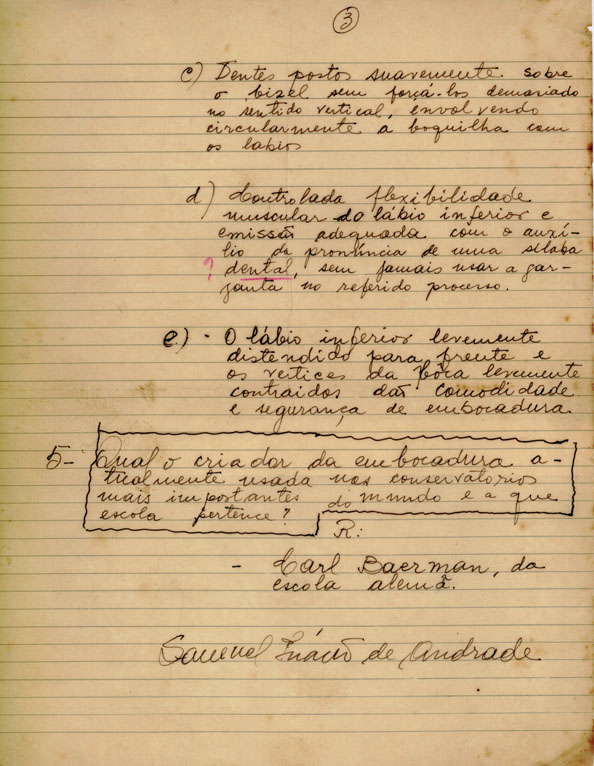 3
c) Dentes postos suavemente sobre
o bizel sem forçá-los demasiado
no sentido vertical, envolvendo
circularmente a boquilha com
os labios
d) Controlada flexibilidade
muscular do lábio inferior e
emissão adequada com o auxí-
lio da pronúncia de uma sílaba
? dental, sem jamais usar a gar-
ganta no referido processo.
e) - O lábio inferior levemente
distendido para frente e
os vertices da bôca levemente
contraidos dão comodidade
e segurança de embocadura.
5- Qual o criador da embocadura a-
tualmente usada nos conservatorios
mais importantes do mundo e a que
escola pertence?
R:
- Carl Baerman, da
escola alemã.
Samuel Inácio de Andrade